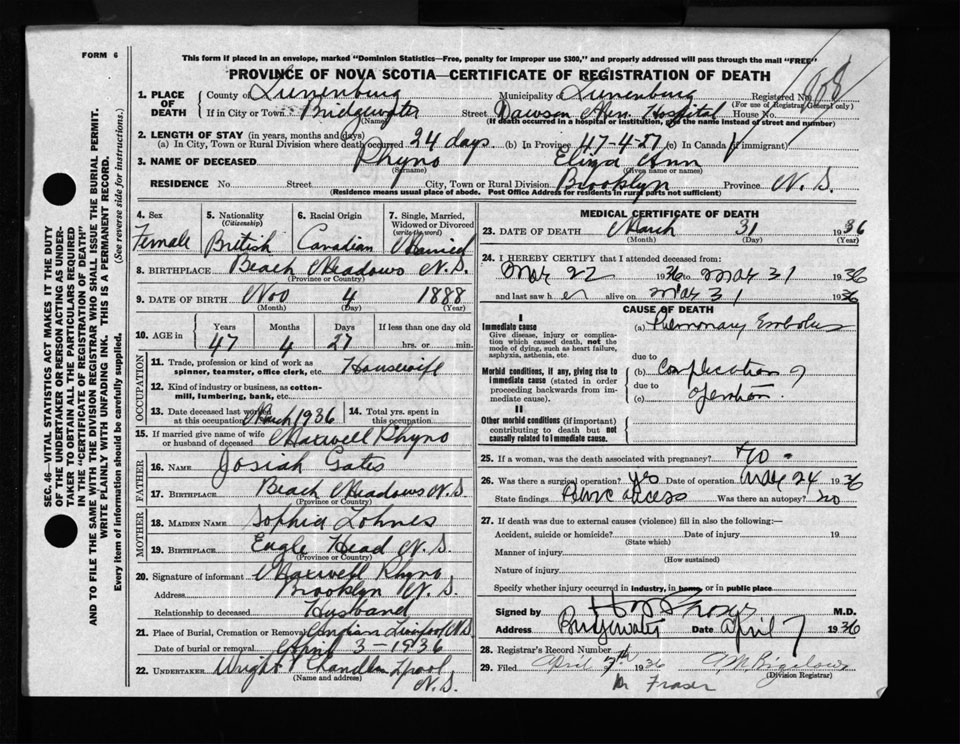 FORM 6
This form if placed in an envelope, marked "Dominion Statistics—Free, penalty for improper use $300," and properly addressed will pass through the mail "FREE"
PROVINCE OF NOVA SCOTIA—CERTIFICATE OF REGISTRATION OF DEATH
SEC. 46—VITAL STATISTICS ACT MAKES IT THE DUTY
OF THE UNDERTAKER OR PERSON ACTING AS UNDER-
TAKER TO OBTAIN ALL THE PARTICULARS REQUIRED
IN THE "CERTIFICATE OF REGISTRATION OF DEATH"
AND TO FILE THE SAME WITH THE DIVISION REGISTRAR WHO SHALL ISSUE THE BURIAL PERMIT.
WRITE PLAINLY WITH UNFADING INK. THIS IS A PERMANENT RECORD.
Every item of information should be carefully supplied. (See reverse side for instructions.)
1. PLACE OF DEATH
County of Lunenburg Municipality of Lunenburg Registered No. 108
(For use of Registrar General only)
If in City or Town Bridgewater Street Dawson Mem. Hospital House No.
(Name) (If death occurred in a hospital or institution, give the name instead of street and number)
2. LENGTH OF STAY (in years, months and days)
(a) In City, Town or Rural Division where death occurred 24 days (b) In Province 47-4-27 (c) In Canada (if immigrant)
3. NAME OF DECEASED Rhyno Eliza Ann
(Surname) (Given name or names)
RESIDENCE No. Street City, Town or Rural Division Brooklyn Province N.S.
(Residence means usual place of abode. Post Office Address for residents in rural parts not sufficient)
4. Sex Female
5. Nationality (Citizenship) British
6. Racial Origin Canadian
7. Single, Married, Widowed or Divorced (write the word) Married
8. BIRTHPLACE Beach Meadows N.S.
(Province or Country)
9. DATE OF BIRTH Nov 4 1888
(Month) (Day) (Year)
10. AGE in Years Months Days If less than one day old
47 4 27 hrs. or min.
OCCUPATION
11. Trade, profession or kind of work as spinner, teamster, office clerk, etc. Housewife
12. Kind of industry or business, as cotton-mill, lumbering, bank, etc.
13. Date deceased last worked at this occupation March 1936
14. Total yrs. spent in this occupation
15. If married give name of wife or husband of deceased Maxwell Rhyno
FATHER
16. NAME Josiah Gates
17. BIRTHPLACE Beach Meadows N.S.
(Province or Country)
MOTHER
18. MAIDEN NAME Sophia Lohnes
19. BIRTHPLACE Eagle Head N.S.
(Province or Country)
20. Signature of informant Maxwell Rhyno
Address Brooklyn N.S.
Relationship to deceased Husband
21. Place of Burial, Cremation or Removal Liverpool N.S.
Date of burial or removal April 3-1936
22. UNDERTAKER Wright Chandler Lpool
(Name and address) N.S.
MEDICAL CERTIFICATE OF DEATH
23. DATE OF DEATH March 31 1936
(Month) (Day) (Year)
24. I HEREBY CERTIFY that I attended deceased from:
Mar 22 1936 to Mar 31 1936
and last saw her alive on Mar 31 1936
CAUSE OF DEATH
I
Immediate cause
Give disease, injury or complication which caused death, not the mode of dying, such as heart failure, asphyxia, asthenia, etc.
(a) Pulmonary Embolus
due to
Morbid conditions, if any, giving rise to immediate cause (stated in order proceeding backwards from immediate cause).
(b) Complication of
due to
(c) Operation.
II
Other morbid conditions (if important) contributing to death but not causally related to immediate cause.
25. If a woman, was the death associated with pregnancy? No.
26. Was there a surgical operation? Yes Date of operation Mar 24 1936
State findings Pelvic abscess Was there an autopsy? no
27. If death was due to external causes (violence) fill in also the following:—
Accident, suicide or homicide? Date of injury 19
(State which)
Manner of injury
(How sustained)
Nature of injury
Specify whether injury occurred in industry, in home, or in public place
Signed by M.D.
Address Bridgewater Date April 7 1936
28. Registrar's Record Number
29. Filed April 7th 1936 Bigelow
(Division Registrar)
Dr Fraser